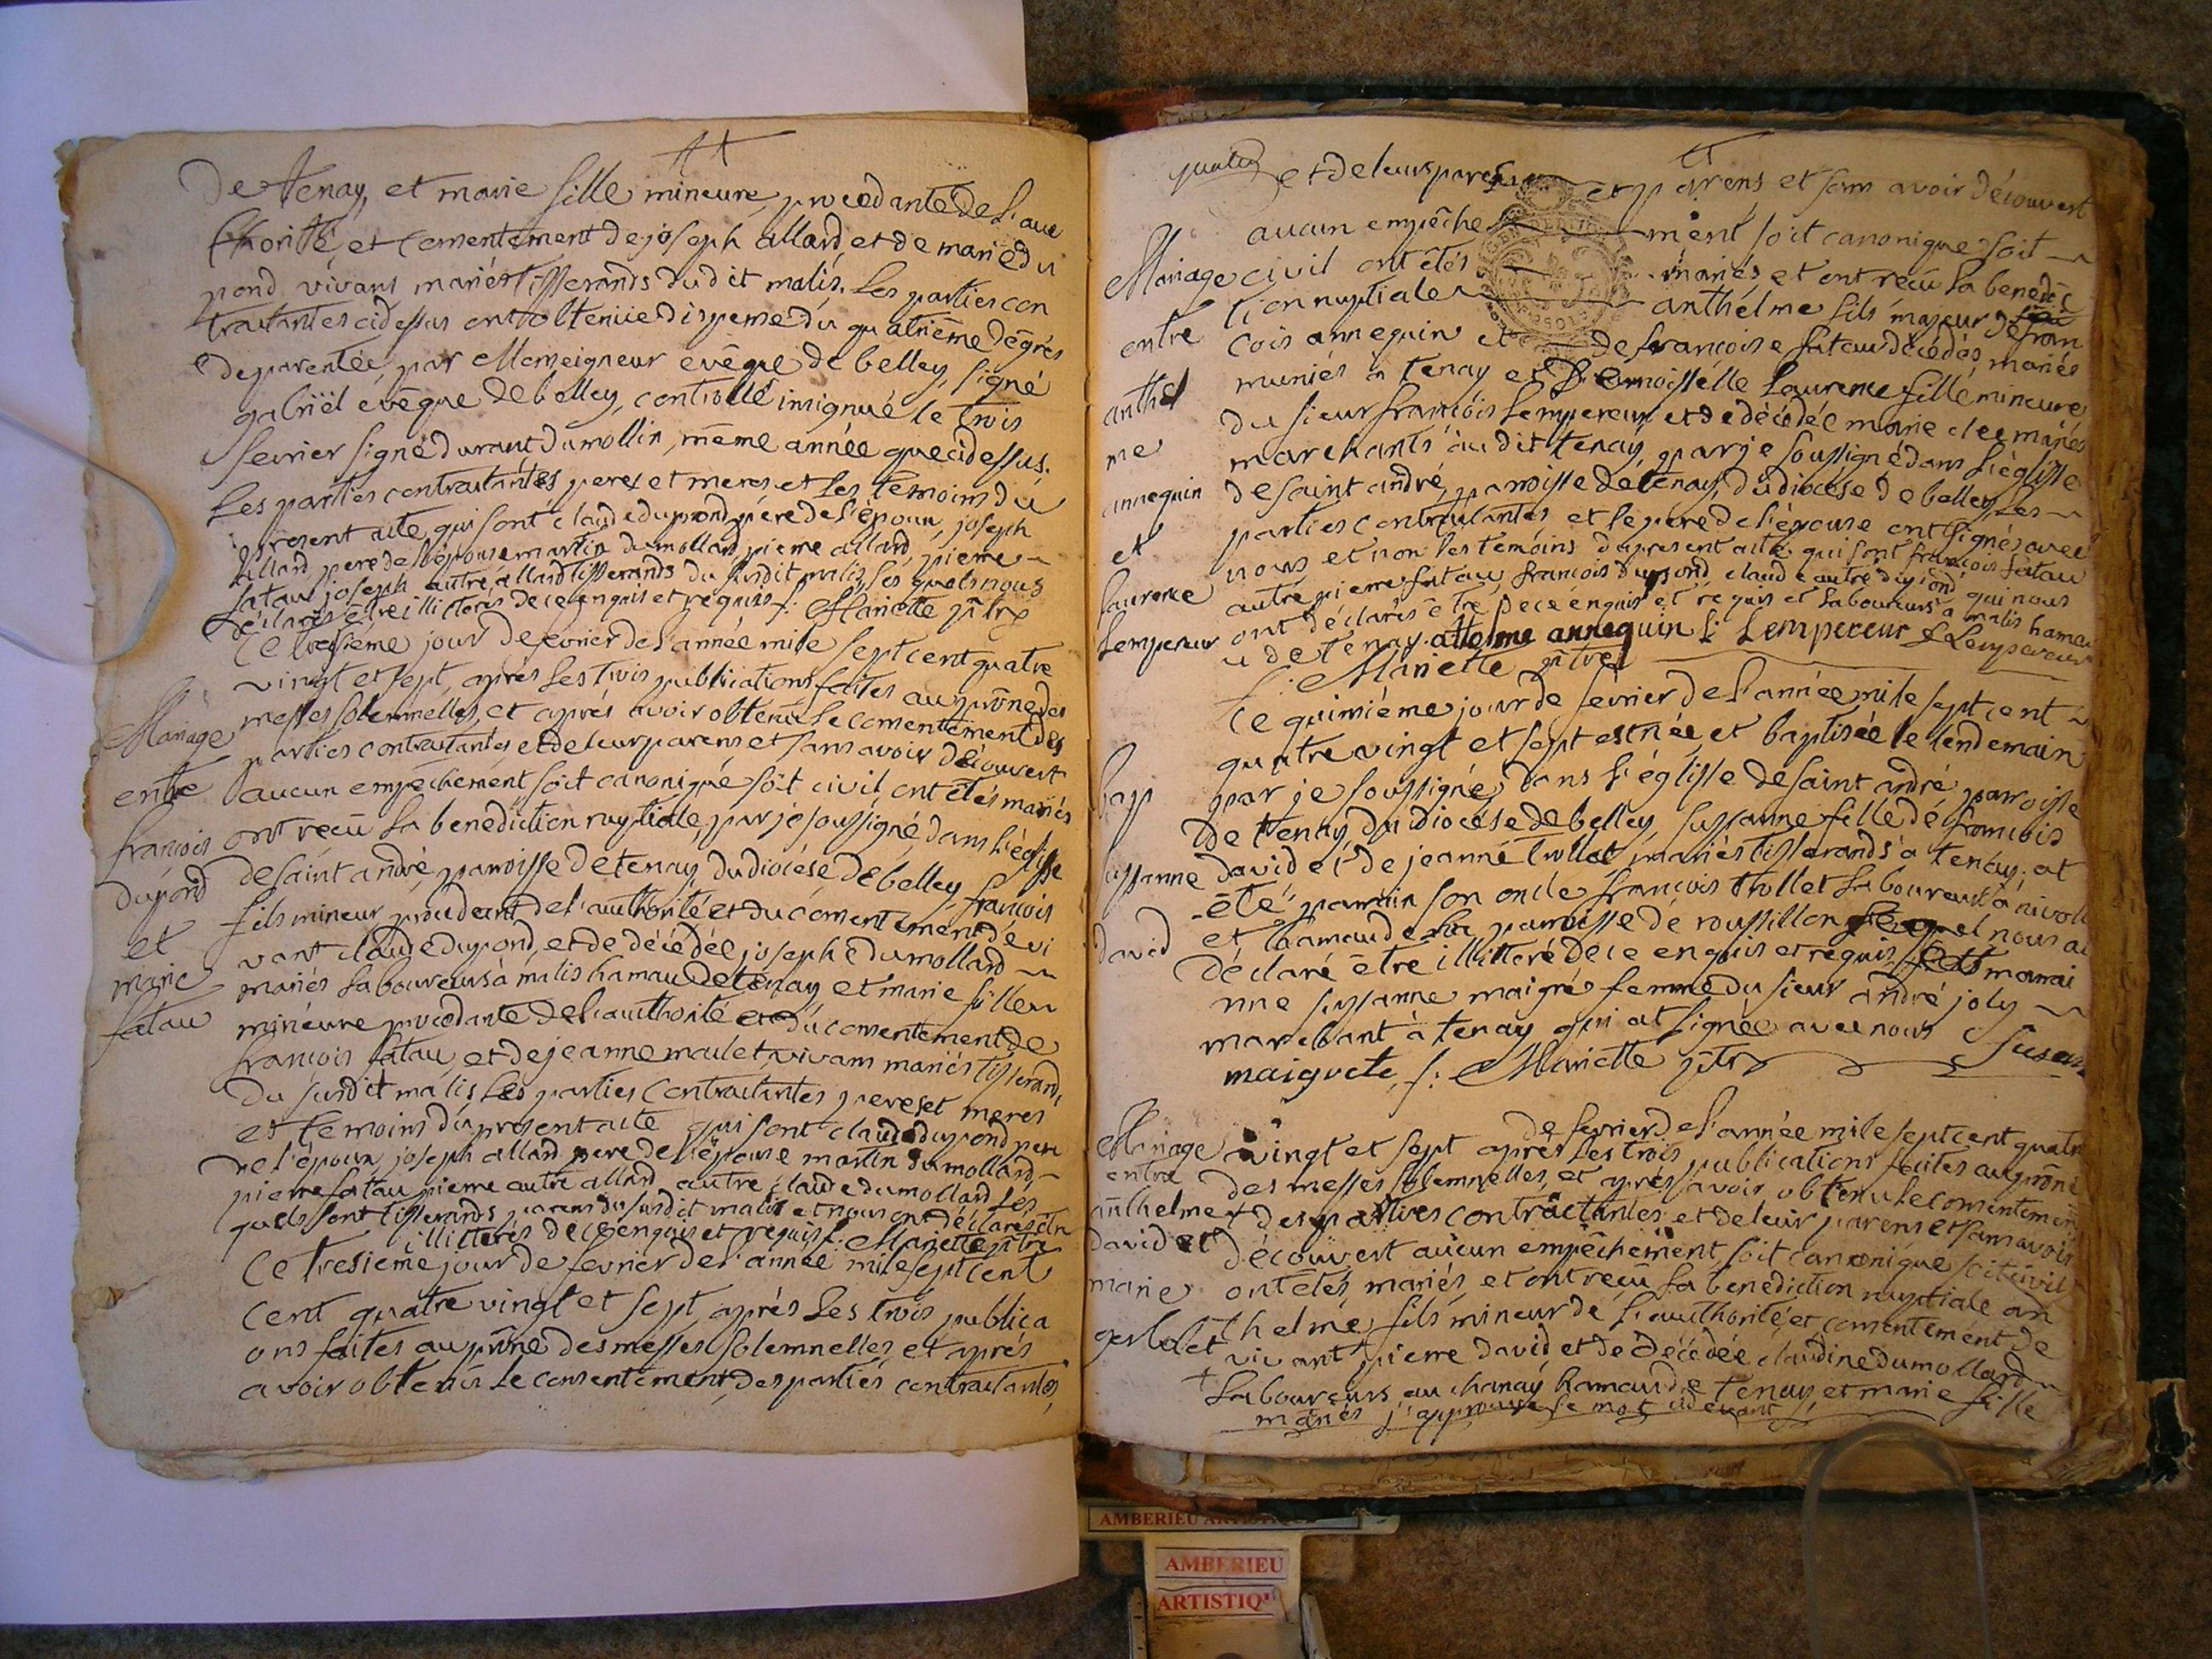 De tenay, et marie fille mineure, procedante de l'au
thorité, et consentement de joseph allard, et de marie du
pond vivans mariés tisserands dudit malis. Les parties con
tractantes cidessus ont obtenüe dispense du quatriême dêgrés
de parentée, par Monseigneur evêque de belley, signé
gabriël evêque de belley, controllé insignué le trois
fevrier signé durant dumollin, même année que cidessus.
Les parties contractantes peres et meres et les têmoins du
present acte, qui sont claude dupond pére de l'époux, joseph
allard pere de l'épouse martin dumollard, pierre allard, pierre
fatau joseph autre allard tisserands du susdit malis, les quels nous
déclarés être illiterés de ce enquis et requis f. Mariette ptre
Ce tresieme jour de fevrier de l'année mile sept cent quatre
vingt et sept, apres les trois publications faites au prône des
messes solemnelles, et aprés avoir obtenu le consentement des
parties contractantes et de leur parens et sans avoir découvert
aucun empêchement soit canonique soit civil ont êtés mariés
ont reçu la benediction nuptiale, par je soussigné, dans l'églisse
de saint andré, paroisse de tenay, du diocése de belley, françois
fils mineur procedant de l'authorité et du consentement de vi
vant claude dupond, et de décédée josephe dumollard
mariés laboureurs à malis hamau de tenay et marie fille
mineure procedante de l'authorité et du consentement de
françois fatau, et de jeanne maulet, vivans mariés tisserands
du susdit malis, les parties contractantes peres et meres
et temoins du present acte qui sont claude dupond pere
de l'époux, joseph allard pere de l'épouse martin dumollard
pierre fatau pierre autre allard autre claude dumollard, les
quels sont tisserands parens du susdit malis et nous ont déclarés être
illiterés de ce enquis et requis f. Mariette ptre
Ce tresieme jour de fevrier de l'année mile sept cent
cent quatre vingt et sept, aprés les trois publica
ons faites au prône des messes solemnelles, et aprés
avoir obtenu le consentement, des parties contractantes,
Mariage
entre
françois
dupond
et
marie
fatau
et de leurs parens et parens et sans avoir découvert
aucun empêchement soit canonique soit
civil ont êtés mariés, et ont reçu la benedic
tion nuptiale anthélme fils majeur de fran
cois annequin et de françoise fatau décédés, mariés
muniés à tenay et Demoisselle Laurence fille mineure
du sieur françois lempereur et de décédée marie clee mariés
marchants audit tenay, par je soussigné dans l'églisse
de saint andré, paroisse de tenay, du diocése de belley, les
parties contractantes et le pere de l'épouse ont signés avec
nous et non les temoins du present acte qui sont françois fatau
autre pierre fatau, françois dupond claude autre dupond qui nous
ont déclarés être de ce enquis et requis et laboureurs à malis hamau
u de tenay. attelme annequin L: Lempereur f Lempereur
f: Mariette ptre
Mariage
entre
anthel
me
annequin
et
laurence
lempereur
Ce quinsiéme jour de fevrier de l'année mile sept cent
quatre vingt et sept est née, et baptisée le lendemain
par je soussigné, dans l'églisse de saint andré paroisse
de tenay, du diocese de belley, sussanne fille de françois
david et de jeanne trollet mariés tisserands à tenay, at
êté parrain son oncle françois trollet laboureur à nivol
et laamau de la paroisse de roussillon lequel nous a
déclaré être illitteré de ce enquis et requis, et marrai
nne sussanne maigres femme du sieur andré joly
marchant à tenay qui at signée avec nous Susan
maiguete, f: Mariette ptre
bap
sussanne
david
de fevrier de l'année mile sept cent quatre
vingt et sept aprés les trois publications faites au prône
des messes solemnelles, et aprés avoir obtenu le consentement
des parties contractantes et de leur parens et sans avoir
découvert aucun empêchement, soit canonique soit civil
ont êtés mariés, et ont reçu la benediction nuptiale an
thelme fils mineur de l'authorité et consentement de
vivant pierre david et de décédée claudine dumollard
laboureurs au chanay hamau de tenay, et marie fille
mariés j'approuve le mot cidevant
Mariage
entre
anthelme
david et
marie